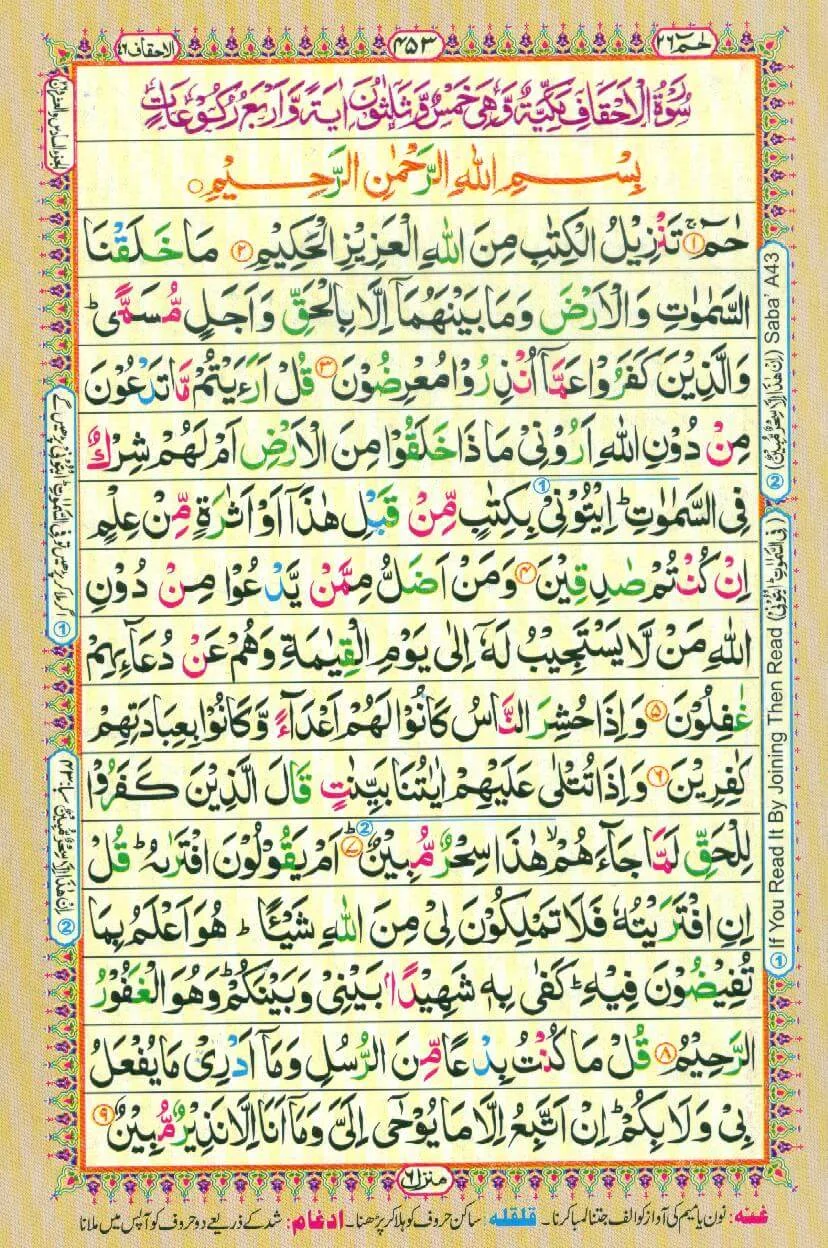 حٰمٓ ٢٦
٤٥٣
الاحقاف ٤٦
سُوْرَةُ الْاَحْقَافِ مَكِّيَّةٌ وَّهِيَ خَمْسٌ وَّثَلٰثُوْنَ اٰيَةً وَّاَرْبَعُ رُكُوْعَاتٍ
بِسْمِ اللّٰهِ الرَّحْمٰنِ الرَّحِيْمِ
حٰمٓ ۚ ﴿١﴾ تَنْزِيْلُ الْكِتٰبِ مِنَ اللّٰهِ الْعَزِيْزِ الْحَكِيْمِ ﴿٢﴾ مَا خَلَقْنَا
السَّمٰوٰتِ وَالْاَرْضَ وَمَا بَيْنَهُمَآ اِلَّا بِالْحَقِّ وَاَجَلٍ مُّسَمًّى ؕ
وَالَّذِيْنَ كَفَرُوْا عَمَّآ اُنْذِرُوْا مُعْرِضُوْنَ ﴿٣﴾ قُلْ اَرَءَيْتُمْ مَّا تَدْعُوْنَ
مِنْ دُوْنِ اللّٰهِ اَرُوْنِيْ مَاذَا خَلَقُوْا مِنَ الْاَرْضِ اَمْ لَهُمْ شِرْكٌ
فِي السَّمٰوٰتِ ؕ اِيْتُوْنِيْ ① بِكِتٰبٍ مِّنْ قَبْلِ هٰذَآ اَوْ اَثٰرَةٍ مِّنْ عِلْمٍ
اِنْ كُنْتُمْ صٰدِقِيْنَ ﴿٤﴾ وَمَنْ اَضَلُّ مِمَّنْ يَّدْعُوْا مِنْ دُوْنِ
اللّٰهِ مَنْ لَّا يَسْتَجِيْبُ لَهٗٓ اِلٰى يَوْمِ الْقِيٰمَةِ وَهُمْ عَنْ دُعَآئِهِمْ
غٰفِلُوْنَ ﴿٥﴾ وَاِذَا حُشِرَ النَّاسُ كَانُوْا لَهُمْ اَعْدَآءً وَّكَانُوْا بِعِبَادَتِهِمْ
كٰفِرِيْنَ ﴿٦﴾ وَاِذَا تُتْلٰى عَلَيْهِمْ اٰيٰتُنَا بَيِّنٰتٍ قَالَ الَّذِيْنَ كَفَرُوْا
لِلْحَقِّ لَمَّا جَآءَهُمْ ۙ هٰذَا سِحْرٌ مُّبِيْنٌ ﴿٧﴾ ؕ ② اَمْ يَقُوْلُوْنَ افْتَرٰىهُ ؕ قُلْ
اِنِ افْتَرَيْتُهٗ فَلَا تَمْلِكُوْنَ لِيْ مِنَ اللّٰهِ شَيْـًٔا ؕ هُوَ اَعْلَمُ بِمَا
تُفِيْضُوْنَ فِيْهِ ؕ كَفٰى بِهٖ شَهِيْدًۢا بَيْنِيْ وَبَيْنَكُمْ ؕ وَهُوَ الْغَفُوْرُ
الرَّحِيْمُ ﴿٨﴾ قُلْ مَا كُنْتُ بِدْعًا مِّنَ الرُّسُلِ وَمَآ اَدْرِيْ مَا يُفْعَلُ
بِيْ وَلَا بِكُمْ ؕ اِنْ اَتَّبِعُ اِلَّا مَا يُوْحٰٓى اِلَيَّ وَمَآ اَنَا اِلَّا نَذِيْرٌ مُّبِيْنٌ ﴿٩﴾
منزل ٦
غنہ: نون یا میم کی آواز کو الف جتنا لمبا کرنا۔ قلقلہ: ساکن حروف کو ہلا کر پڑھنا۔ ادغام: شد کے ذریعے دو حروف کو آپس میں ملانا
① If You Read It By Joining Then Read (فِي السَّمٰوٰتِ ائْتُوْنِيْ)
② (اِنْ هٰذَا اِلَّا سِحْرٌ مُّبِيْنٌ) Saba' A43
الجزء السادس والعشرون
① اگر ملا کر پڑھیں تو فِي السَّمٰوٰتِ ائْتُوْنِيْ پڑھیں گے
② اِنْ هٰذَا اِلَّا سِحْرٌ مُّبِيْنٌ سبا ٤٣